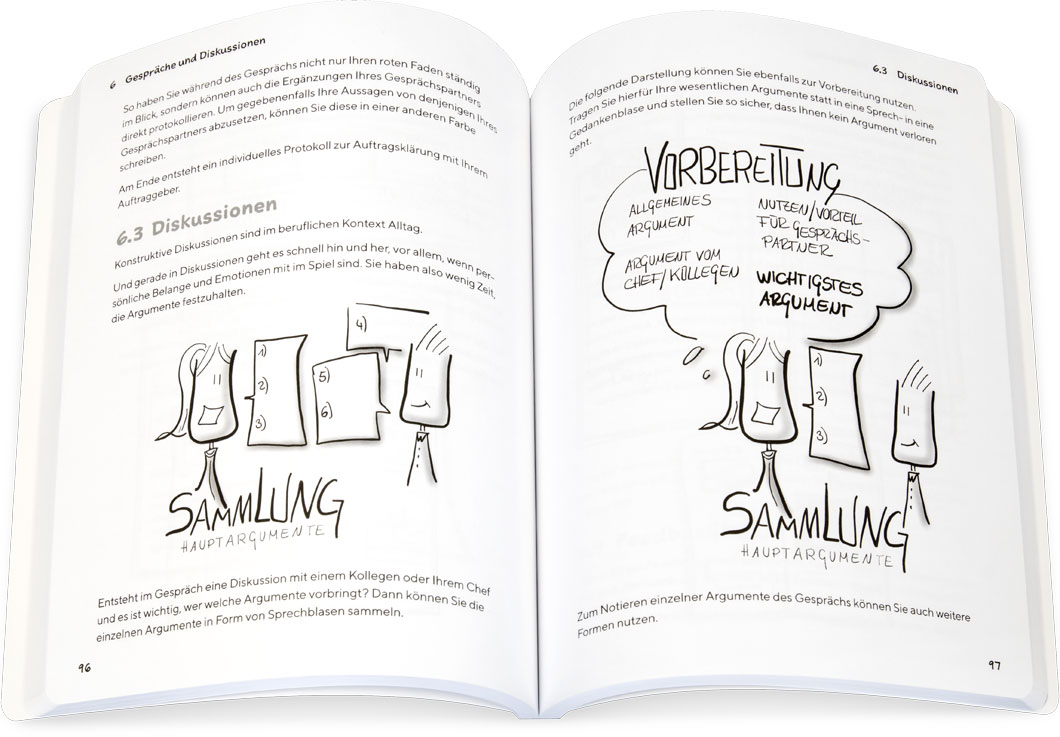 6 Gespräche und Diskussionen
So haben Sie während des Gesprächs nicht nur Ihren roten Faden ständig
im Blick, sondern können auch die Ergänzungen Ihres Gesprächspartners
direkt protokollieren. Um gegebenenfalls Ihre Aussagen von denjenigen Ihres
Gesprächspartners abzusetzen, können Sie diese in einer anderen Farbe
schreiben.
Am Ende entsteht ein individuelles Protokoll zur Auftragsklärung mit Ihrem
Auftraggeber.
6.3 Diskussionen
Konstruktive Diskussionen sind im beruflichen Kontext Alltag.
Und gerade in Diskussionen geht es schnell hin und her, vor allem, wenn per-
sönliche Belange und Emotionen mit im Spiel sind. Sie haben also wenig Zeit,
die Argumente festzuhalten.
1)
2)
3)
4)
5)
6)
SAMMLUNG
HAUPTARGUMENTE
Entsteht im Gespräch eine Diskussion mit einem Kollegen oder Ihrem Chef
und es ist wichtig, wer welche Argumente vorbringt? Dann können Sie die
einzelnen Argumente in Form von Sprechblasen sammeln.
96
6.3 Diskussionen
Die folgende Darstellung können Sie ebenfalls zur Vorbereitung nutzen.
Tragen Sie hierfür Ihre wesentlichen Argumente statt in eine Sprech- in eine
Gedankenblase und stellen Sie so sicher, dass Ihnen kein Argument verloren
geht.
VORBEREITUNG
ALLGEMEINES
ARGUMENT
ARGUMENT VOM
CHEF/KOLLEGEN
NUTZEN/VORTEIL
FÜR GESPRÄCHS-
PARTNER
WICHTIGSTES
ARGUMENT
1)
2)
3)
SAMMLUNG
HAUPTARGUMENTE
Zum Notieren einzelner Argumente des Gesprächs können Sie auch weitere
Formen nutzen.
97